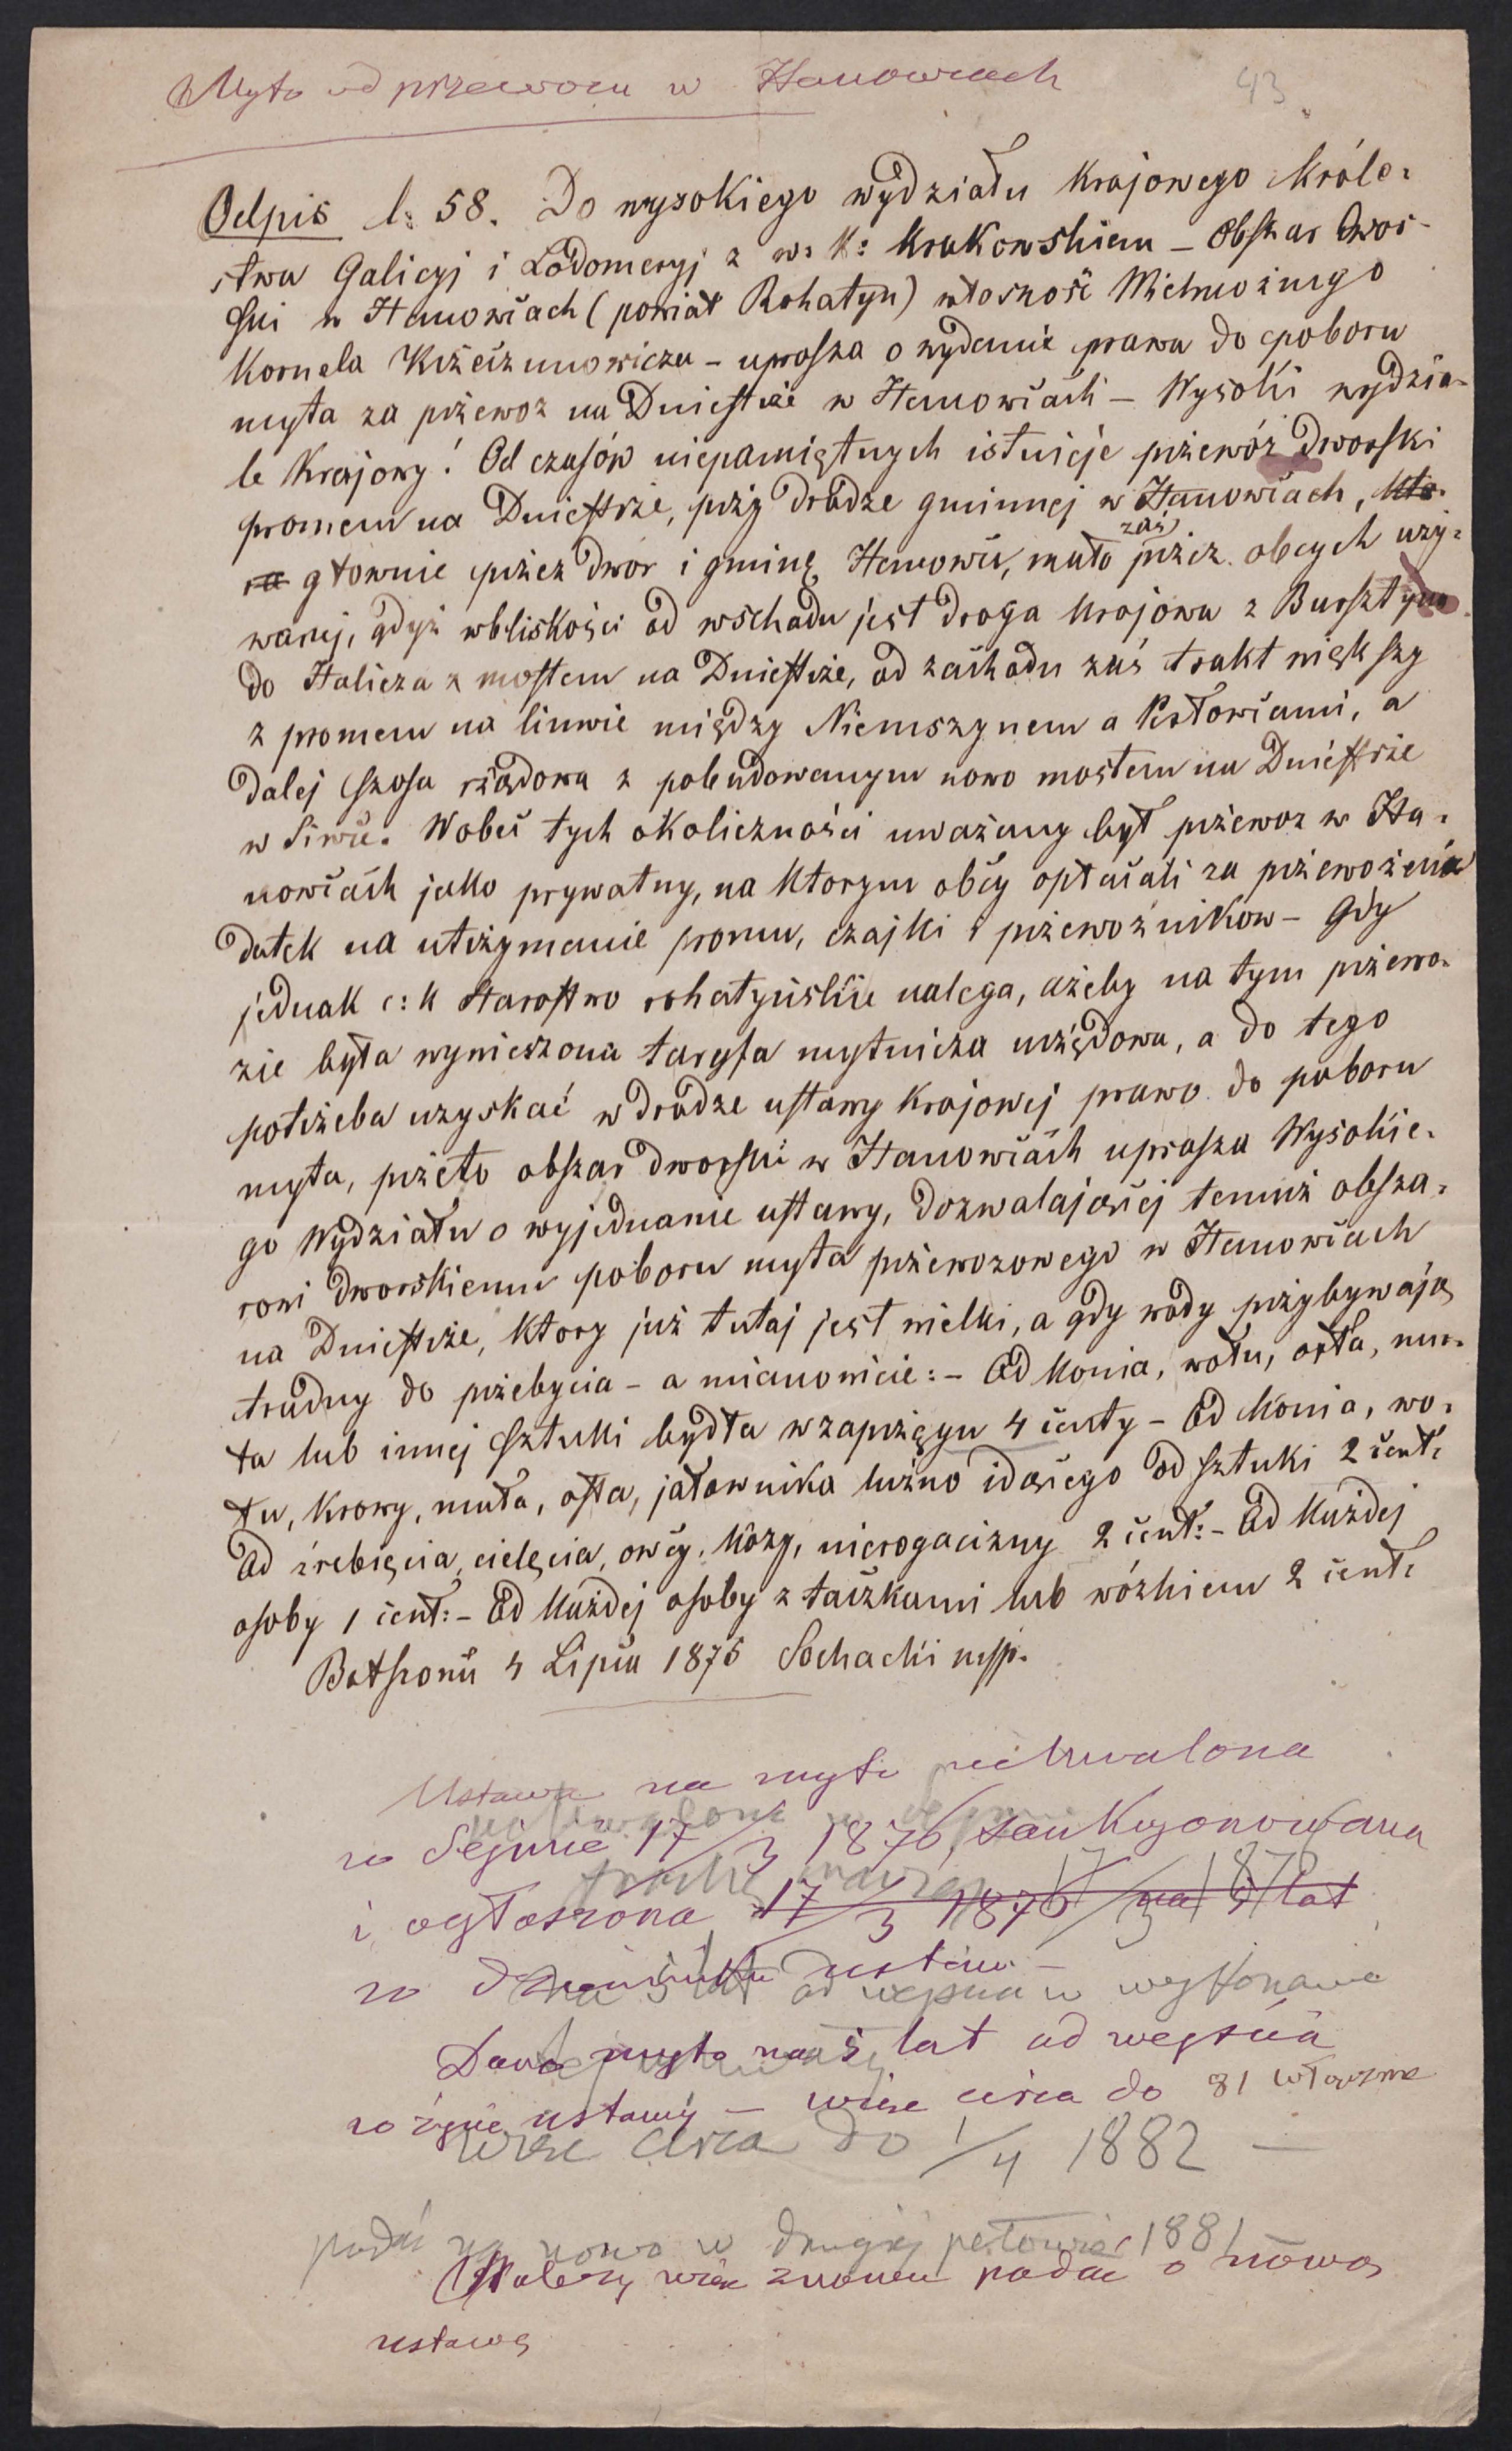 Myto od przewozu w Hanowcach
43
Odpis l: 58. Do wysokiego wydziału Krajowego Króle-
stwa Galicyj i Lodomeryj z w: K: Krakowskiem – Obszar Dwor-
ski w Hanowcach (powiat Rohatyn) własność Wielmożnego
Kornela Krzeczunowicza – uprasza o wydanie prawa do poboru
myta za przewoz na Dniestrze w Hanowcach – Wysoki wydzia-
le Krajowy! Od czasów niepamiętnych istnieje przewóz Dworski
promem na Dniestrze, przy drodze gminnej w Hanowcach, któ-
ra głownie przez Dwor i gminę Hanowce, mało zaś przez obcych uży-
wanej, gdyż w bliskości od wschodu jest droga Krajowa z Bursztyna
do Halicza z mostem na Dniestrze, od zachodu zaś trakt większy
z promem na linwie między Niemszynem a Perłowcami, a
dalej szosa rządowa z pobudowanym nowo mostem na Dniestrze
w Siwce. Wobec tych okoliczności uważany był przewoz w Ha-
nowcach jako prywatny, na Ktorym obcy opłacali za przewożenie
datek na utrzymanie promu, czajki i przewoźnikow – Gdy
jednak c: k Starostwo rohatyńskie nalega, ażeby na tym przewo-
zie była wywieszona taryfa mytnicza urzędowa, a do tego
potrzeba uzyskać w drodze ustawy Krajowej prawo do poboru
myta, przeto obszar dworski w Hanowcach uprasza Wysokie-
go Wydziału o wyjednanie ustawy, dozwalającej temuż obsza-
rowi dworskiemu poboru myta przewozowego w Hanowcach
na Dniestrze, Ktory już tutaj jest wielki, a gdy wody przybywają
trudny do przebycia – a mianowicie: – Od Konia, wołu, osła, mu-
ła lub innej sztuki bydła w zaprzęgu 4 centy – Od Konia, wo-
łu, Krowy, muła, osła, jałownika luźno idącego od sztuki 2 cent:
Od źrebięcia, cielęcia, owcy, Kozy, nierogacizny 2 cent: – Od Każdej
osoby 1 cent: – Od Każdej osoby z taczkami lub wózkiem 2 cent:
Bołszowce 4 Lipca 1875 Sochacki mpp.
Ustawa na myto uchwalona
w Sejmie 17/3 1876, sankcyonowana
i ogłoszona 17/3 1876 na 5 lat
17/3 1876
w Dzienniku ustaw –
na 5 lat od wejścia w wykonanie
Dano myto na 5 lat od wejścia
w życie ustawy – więc circa do 81 włącznie
więc circa do 1/4 1882 –
podać na nowo w drugiej połowie 1881
Należy więc znowu podać o nową
ustawę